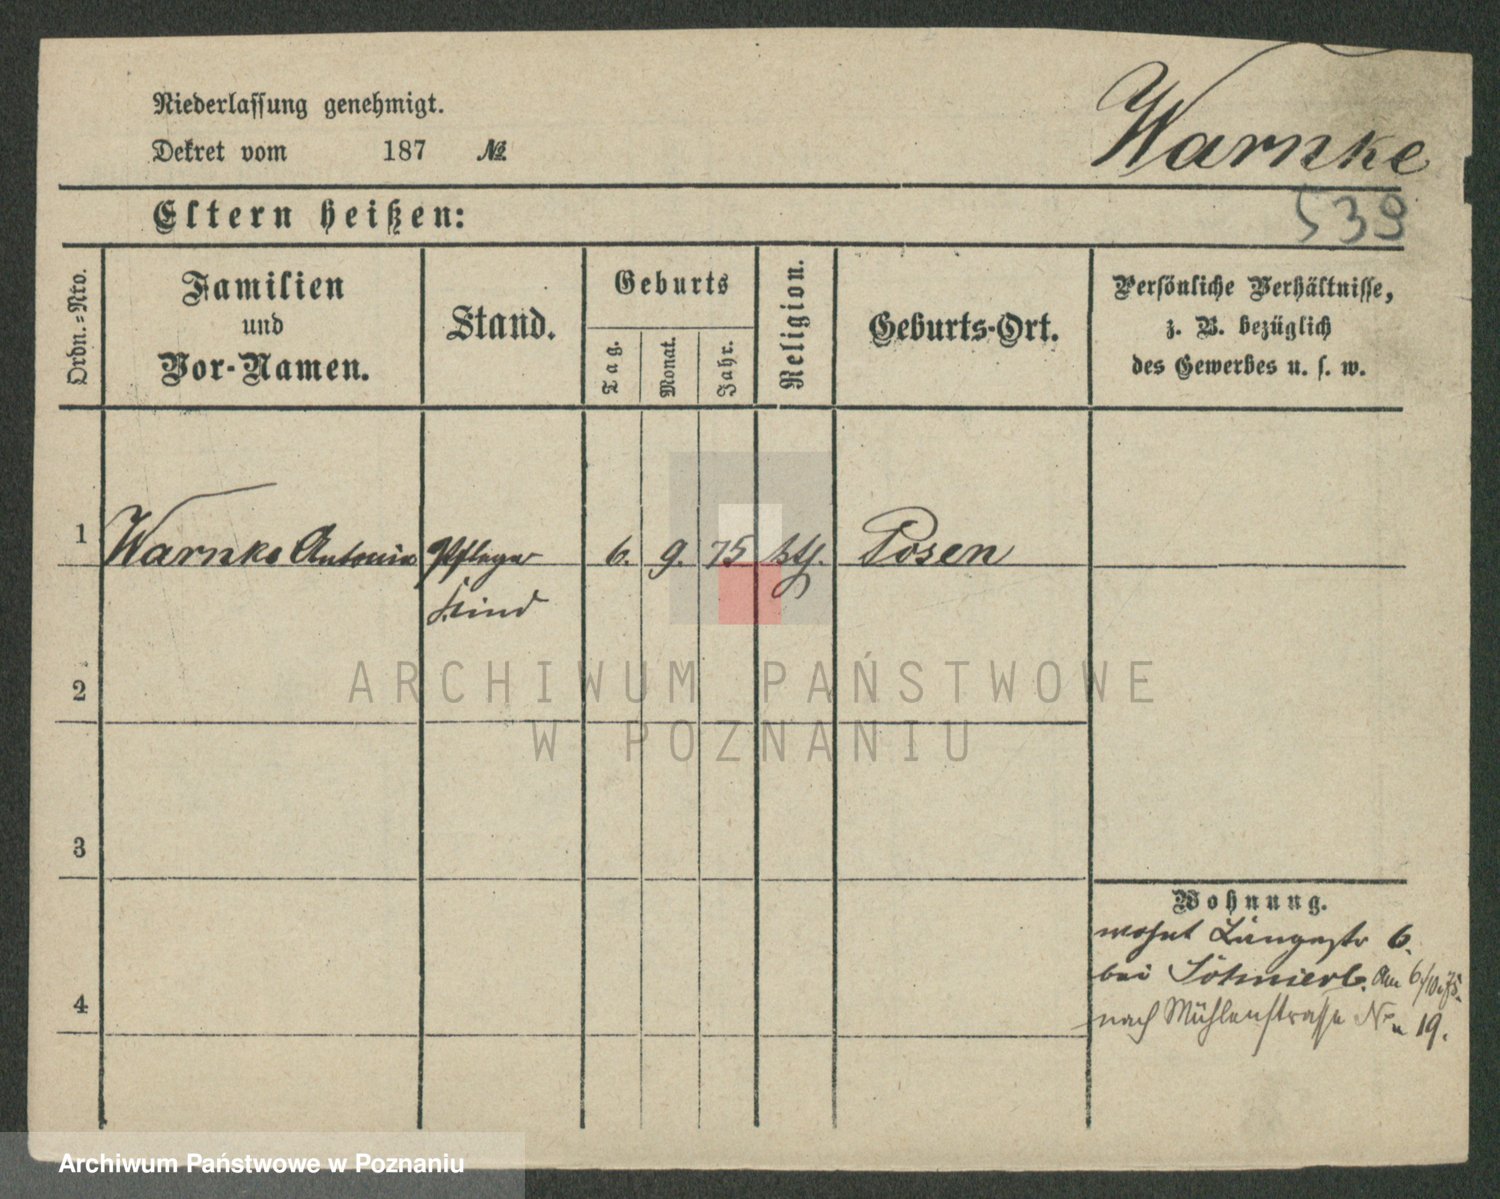 Niederlassung genehmigt.
Warnke
Dekret vom 187 №
539
Eltern heißen:
Ordn.-Nro.
Familien
und
Vor-Namen.
Stand.
Geburts
Tag.
Monat.
Jahr.
Religion.
Geburts-Ort.
Persönliche Verhältnisse,
z. B. bezüglich
des Gewerbes u. s. w.
1 Warnke Antonie Pflege 6. 9. 75 kth. Posen
Kind
2
ARCHIWUM PAŃSTWOWE
W POZNANIU
3
Wohnung.
wohnt Langestr 6.
bei Am 6/10.75.
4
nach Mühlenstrasse No 19.
Archiwum Państwowe w Poznaniu